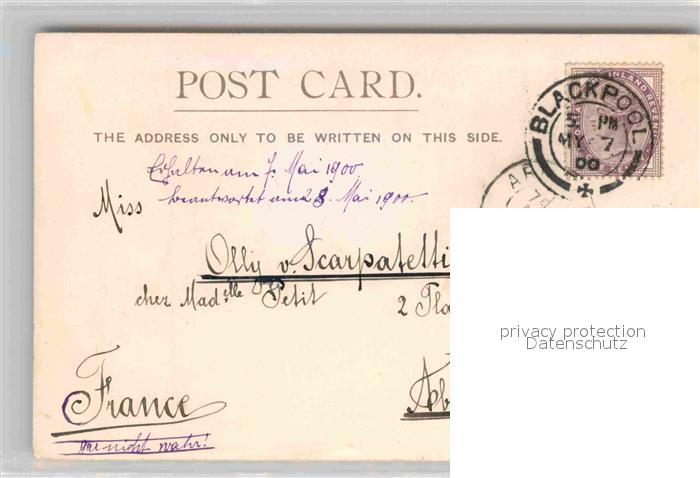 POST CARD.
THE ADDRESS ONLY TO BE WRITTEN ON THIS SIDE.
INLAND REV
BLACKPOOL
5 PM
MY 7
00
Erhalten am 7. Mai 1900
beantwortet am 28. Mai 1900.
Miss
Olly v. Scarpatetti
chez Mad.selle Petit 2 Pla
privacy protection
Datenschutz
France Ab
gar nicht wahr!